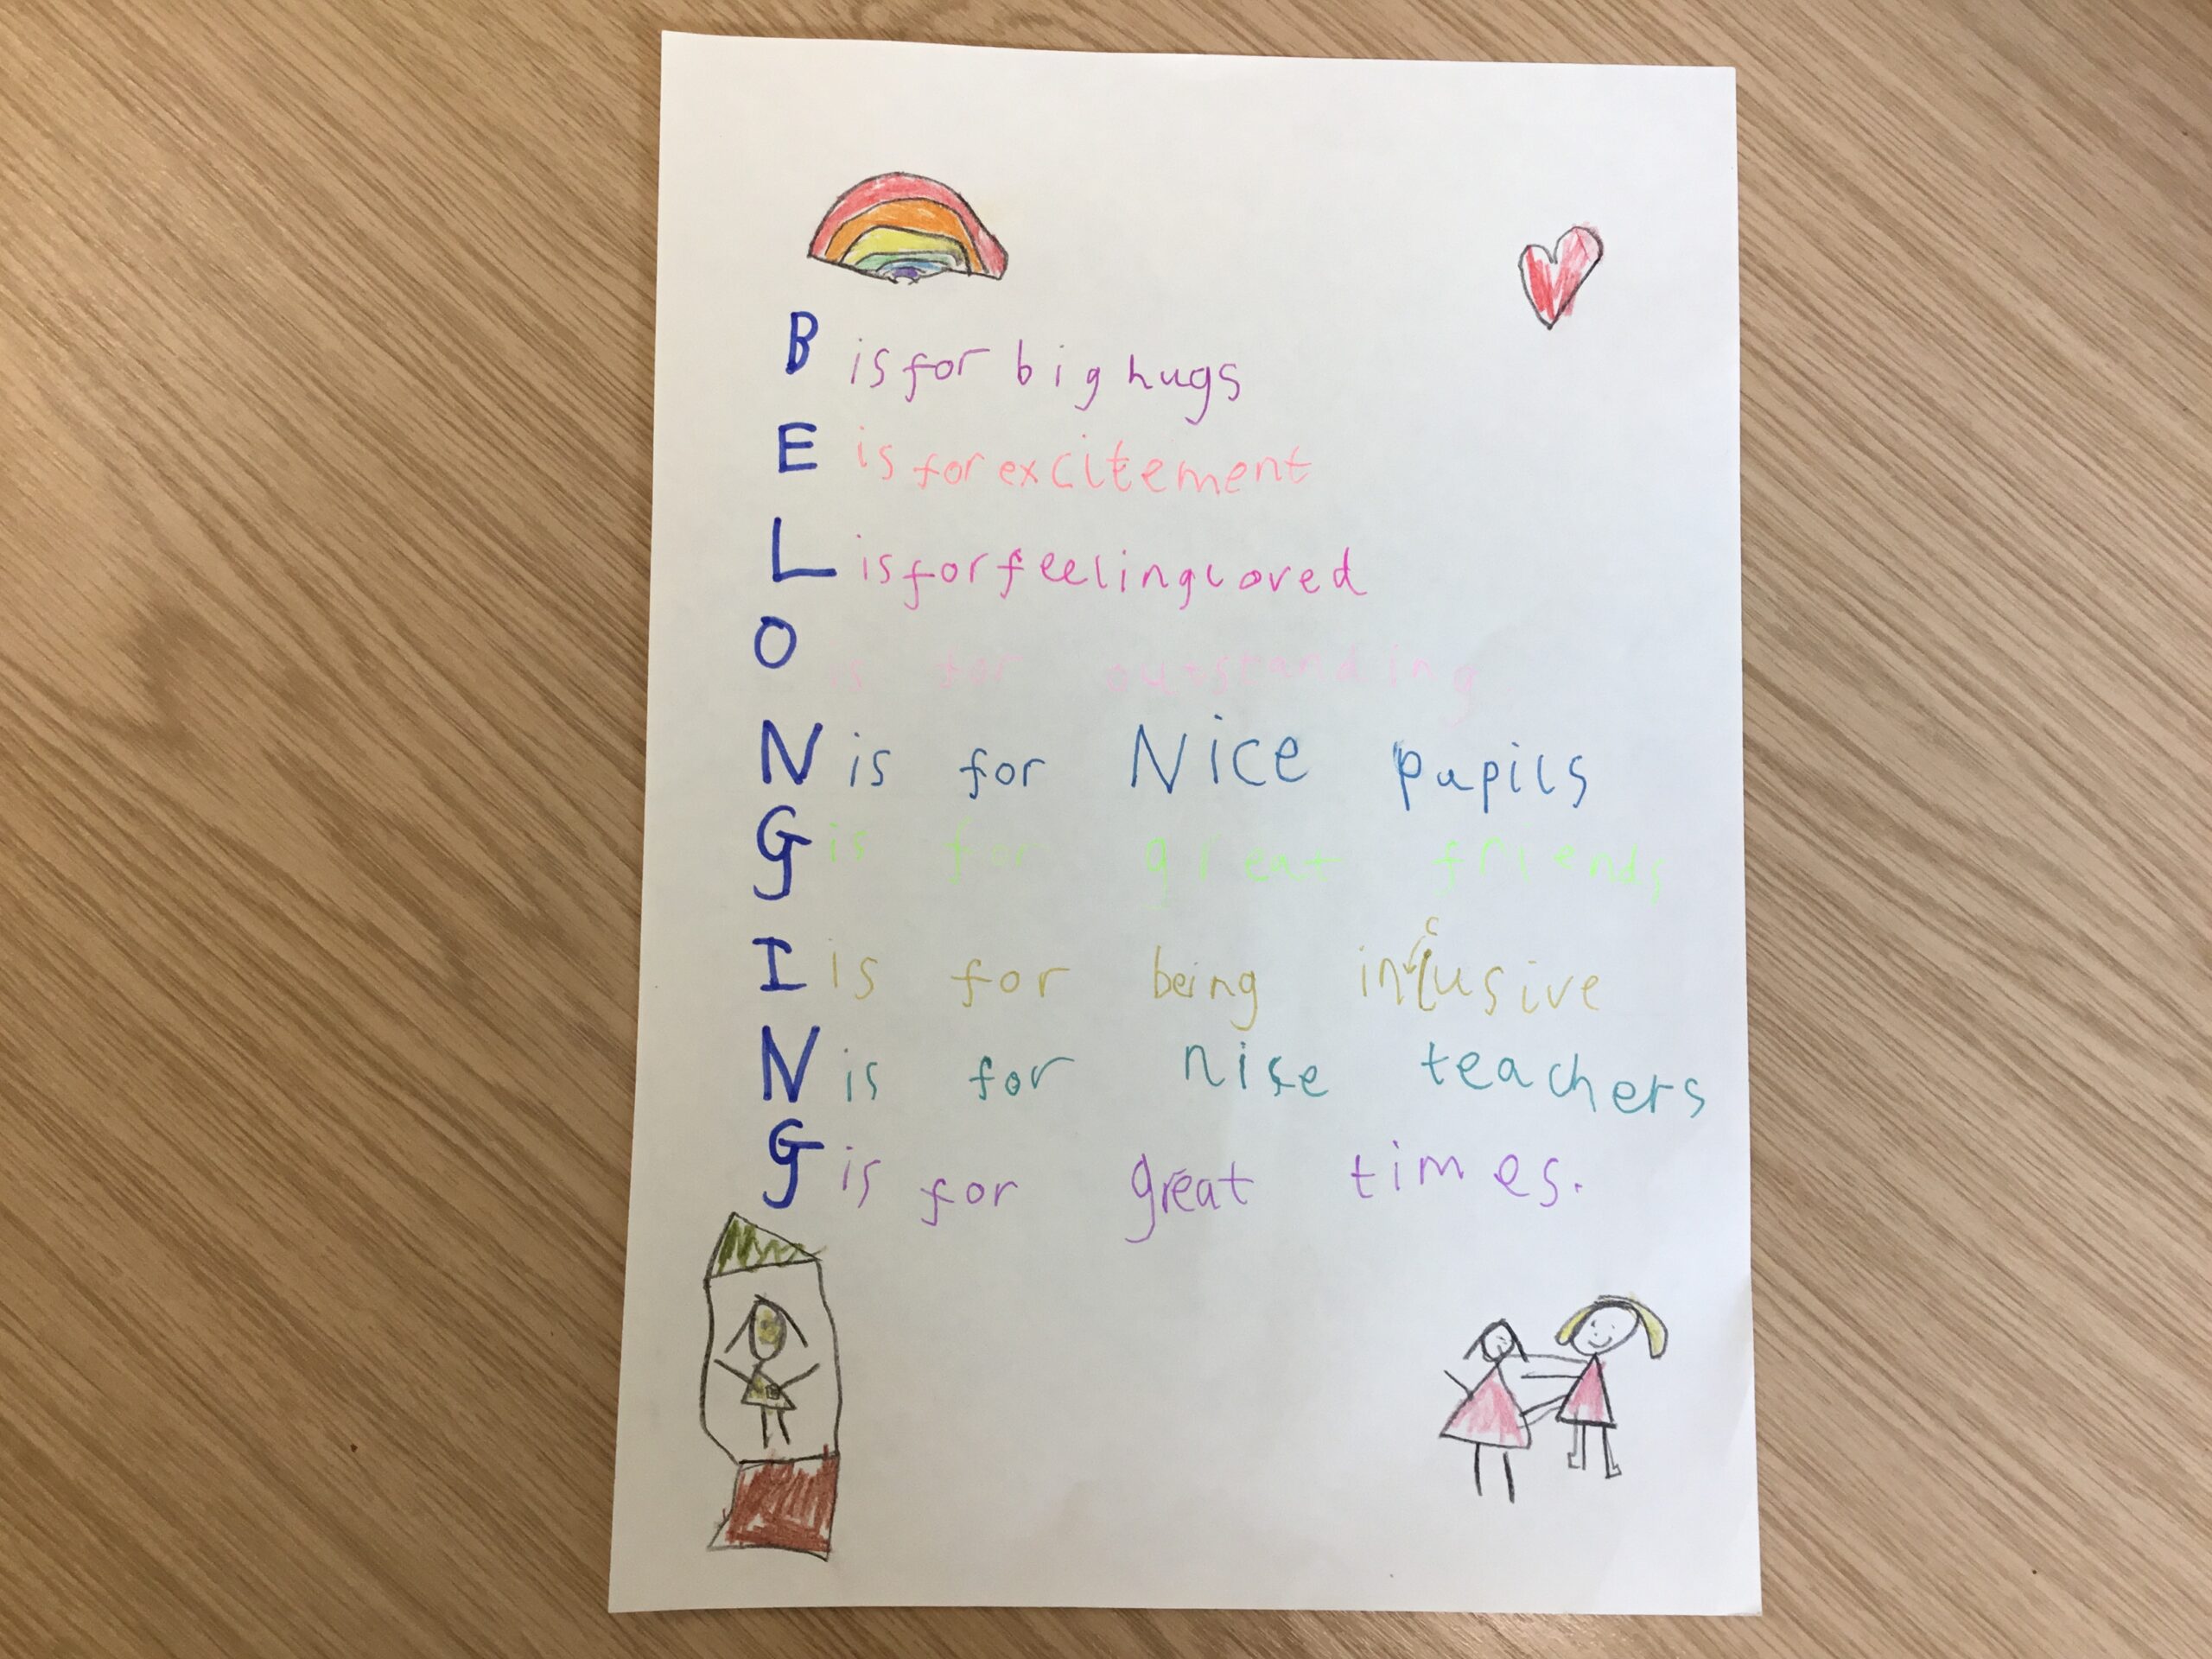 B is for big hugs
E is for excitement
L is for feeling loved
O is for outstanding
N is for Nice pupils
G is for great friends
I is for being inclusive
N is for nise teachers
G is for great times.